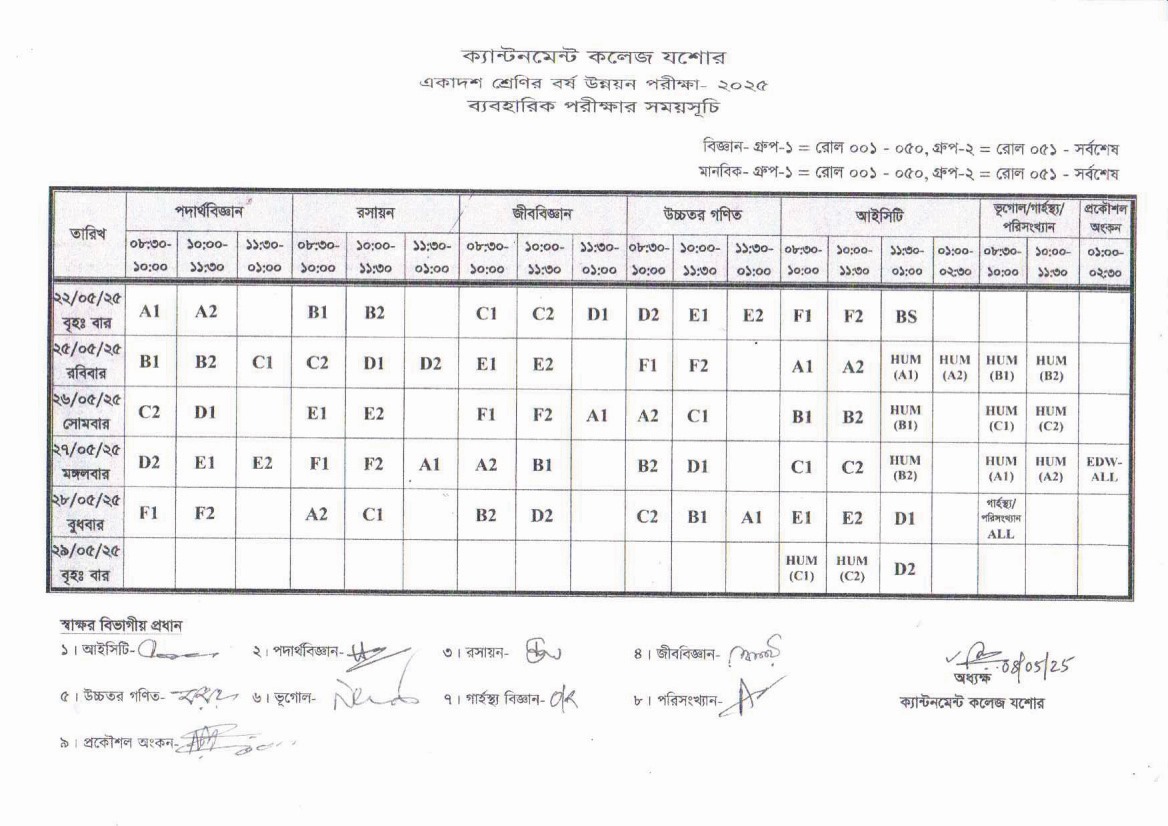 ক্যান্টনমেন্ট কলেজ যশোর
একাদশ শ্রেণির বর্ষ উন্নয়ন পরীক্ষা- ২০২৫
ব্যবহারিক পরীক্ষার সময়সূচি
বিজ্ঞান- গ্রুপ-১ = রোল ০০১ - ০৫০, গ্রুপ-২ = রোল ০৫১ - সর্বশেষ
মানবিক- গ্রুপ-১ = রোল ০০১ - ০৫০, গ্রুপ-২ = রোল ০৫১ - সর্বশেষ
তারিখ পদার্থবিজ্ঞান রসায়ন জীববিজ্ঞান উচ্চতর গণিত আইসিটি ভূগোল/গার্হস্থ্য/পরিসংখ্যান প্রকৌশল অংকন
০৮:৩০-১০:০০ ১০:০০-১১:৩০ ১১:৩০-০১:০০ ০৮:৩০-১০:০০ ১০:০০-১১:৩০ ১১:৩০-০১:০০ ০৮:৩০-১০:০০ ১০:০০-১১:৩০ ১১:৩০-০১:০০ ০৮:৩০-১০:০০ ১০:০০-১১:৩০ ১১:৩০-০১:০০ ০৮:৩০-১০:০০ ১০:০০-১১:৩০ ১১:৩০-০১:০০ ০১:০০-০২:৩০ ০৮:৩০-১০:০০ ১০:০০-১১:৩০ ০১:০০-০২:৩০
২২/০৫/২৫ বৃহঃ বার A1 A2 B1 B2 C1 C2 D1 D2 E1 E2 F1 F2 BS
২৫/০৫/২৫ রবিবার B1 B2 C1 C2 D1 D2 E1 E2 F1 F2 A1 A2 HUM (A1) HUM (A2) HUM (B1) HUM (B2)
২৬/০৫/২৫ সোমবার C2 D1 E1 E2 F1 F2 A1 A2 C1 B1 B2 HUM (B1) HUM (C1) HUM (C2)
২৭/০৫/২৫ মঙ্গলবার D2 E1 E2 F1 F2 A1 A2 B1 B2 D1 C1 C2 HUM (B2) HUM (A1) HUM (A2) EDW-ALL
২৮/০৫/২৫ বুধবার F1 F2 A2 C1 B2 D2 C2 B1 A1 E1 E2 D1 গার্হস্থ্য/পরিসংখ্যান ALL
২৯/০৫/২৫ বৃহঃ বার HUM (C1) HUM (C2) D2
স্বাক্ষর বিভাগীয় প্রধান
১। আইসিটি- ২। পদার্থবিজ্ঞান- ৩। রসায়ন- ৪। জীববিজ্ঞান-
08/05/25
অধ্যক্ষ
৫। উচ্চতর গণিত- ৬। ভূগোল- ৭। গার্হস্থ্য বিজ্ঞান- ৮। পরিসংখ্যান- ক্যান্টনমেন্ট কলেজ যশোর
৯। প্রকৌশল অংকন-